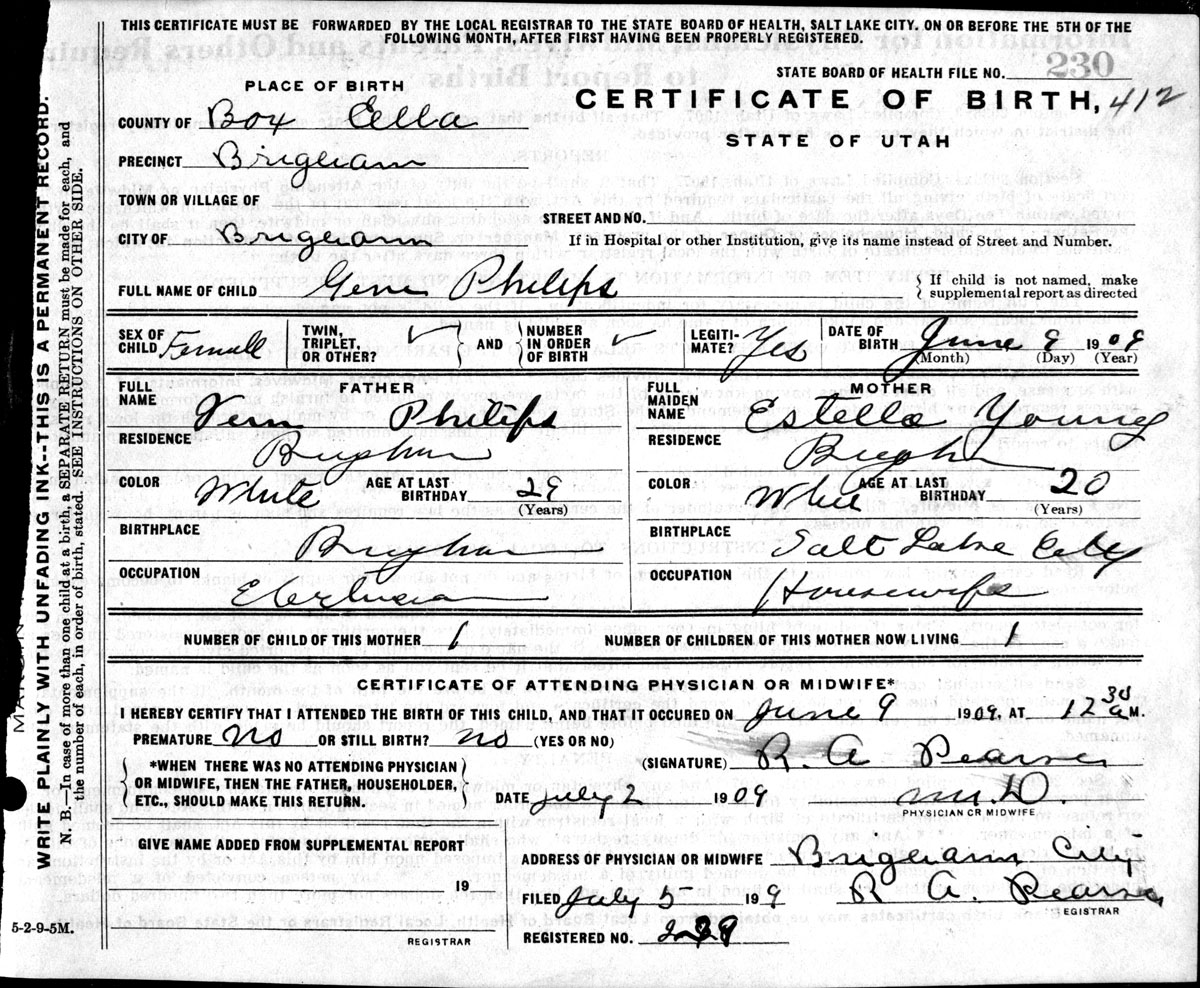 THIS CERTIFICATE MUST BE FORWARDED BY THE LOCAL REGISTRAR TO THE STATE BOARD OF HEALTH, SALT LAKE CITY, ON OR BEFORE THE 5TH OF THE
FOLLOWING MONTH, AFTER FIRST HAVING BEEN PROPERLY REGISTERED.
STATE BOARD OF HEALTH FILE NO. 230
PLACE OF BIRTH
CERTIFICATE OF BIRTH, 412
STATE OF UTAH
COUNTY OF Box Elder
PRECINCT Brigham
TOWN OR VILLAGE OF
STREET AND NO.
CITY OF Brigham
If in Hospital or other Institution, give its name instead of Street and Number.
FULL NAME OF CHILD Gene Phelips
If child is not named, make
supplemental report as directed
SEX OF CHILD Female
TWIN, TRIPLET, OR OTHER? ✓ AND NUMBER IN ORDER OF BIRTH ✓
LEGITIMATE? Yes
DATE OF BIRTH June 9 1909
(Month) (Day) (Year)
FATHER
FULL NAME Vern Phelips
RESIDENCE Brigham
COLOR White AGE AT LAST BIRTHDAY 29
(Years)
BIRTHPLACE Brigham
OCCUPATION Electrician
MOTHER
FULL MAIDEN NAME Estella Young
RESIDENCE Brigham
COLOR White AGE AT LAST BIRTHDAY 20
(Years)
BIRTHPLACE Salt Lake City
OCCUPATION Housewife
NUMBER OF CHILD OF THIS MOTHER 1
NUMBER OF CHILDREN OF THIS MOTHER NOW LIVING 1
CERTIFICATE OF ATTENDING PHYSICIAN OR MIDWIFE*
I HEREBY CERTIFY THAT I ATTENDED THE BIRTH OF THIS CHILD, AND THAT IT OCCURED ON June 9 1909, AT 12 30 a M.
PREMATURE no OR STILL BIRTH? no (YES OR NO)
(SIGNATURE) R. A. Pearse
*WHEN THERE WAS NO ATTENDING PHYSICIAN
OR MIDWIFE, THEN THE FATHER, HOUSEHOLDER,
ETC., SHOULD MAKE THIS RETURN.
DATE July 2 1909 M.D.
PHYSICIAN OR MIDWIFE
GIVE NAME ADDED FROM SUPPLEMENTAL REPORT
19
REGISTRAR
ADDRESS OF PHYSICIAN OR MIDWIFE Brigham City
FILED July 5 199 R. A. Pearse
REGISTRAR
REGISTERED NO.
5-2-9-5M.
WRE PLAINLY WITH UNFADING INK--THIS IS A PERMANENT RECORD.
N. B.—In case of more than one child at a birth, a SEPARATE RETURN must be made for each, and
the number of each, in order of birth, stated. SEE INSTRUCTIONS ON OTHER SIDE.